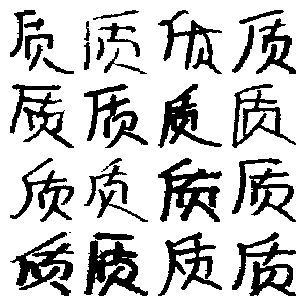 质质质质
质质质质
质质质质
质质质质